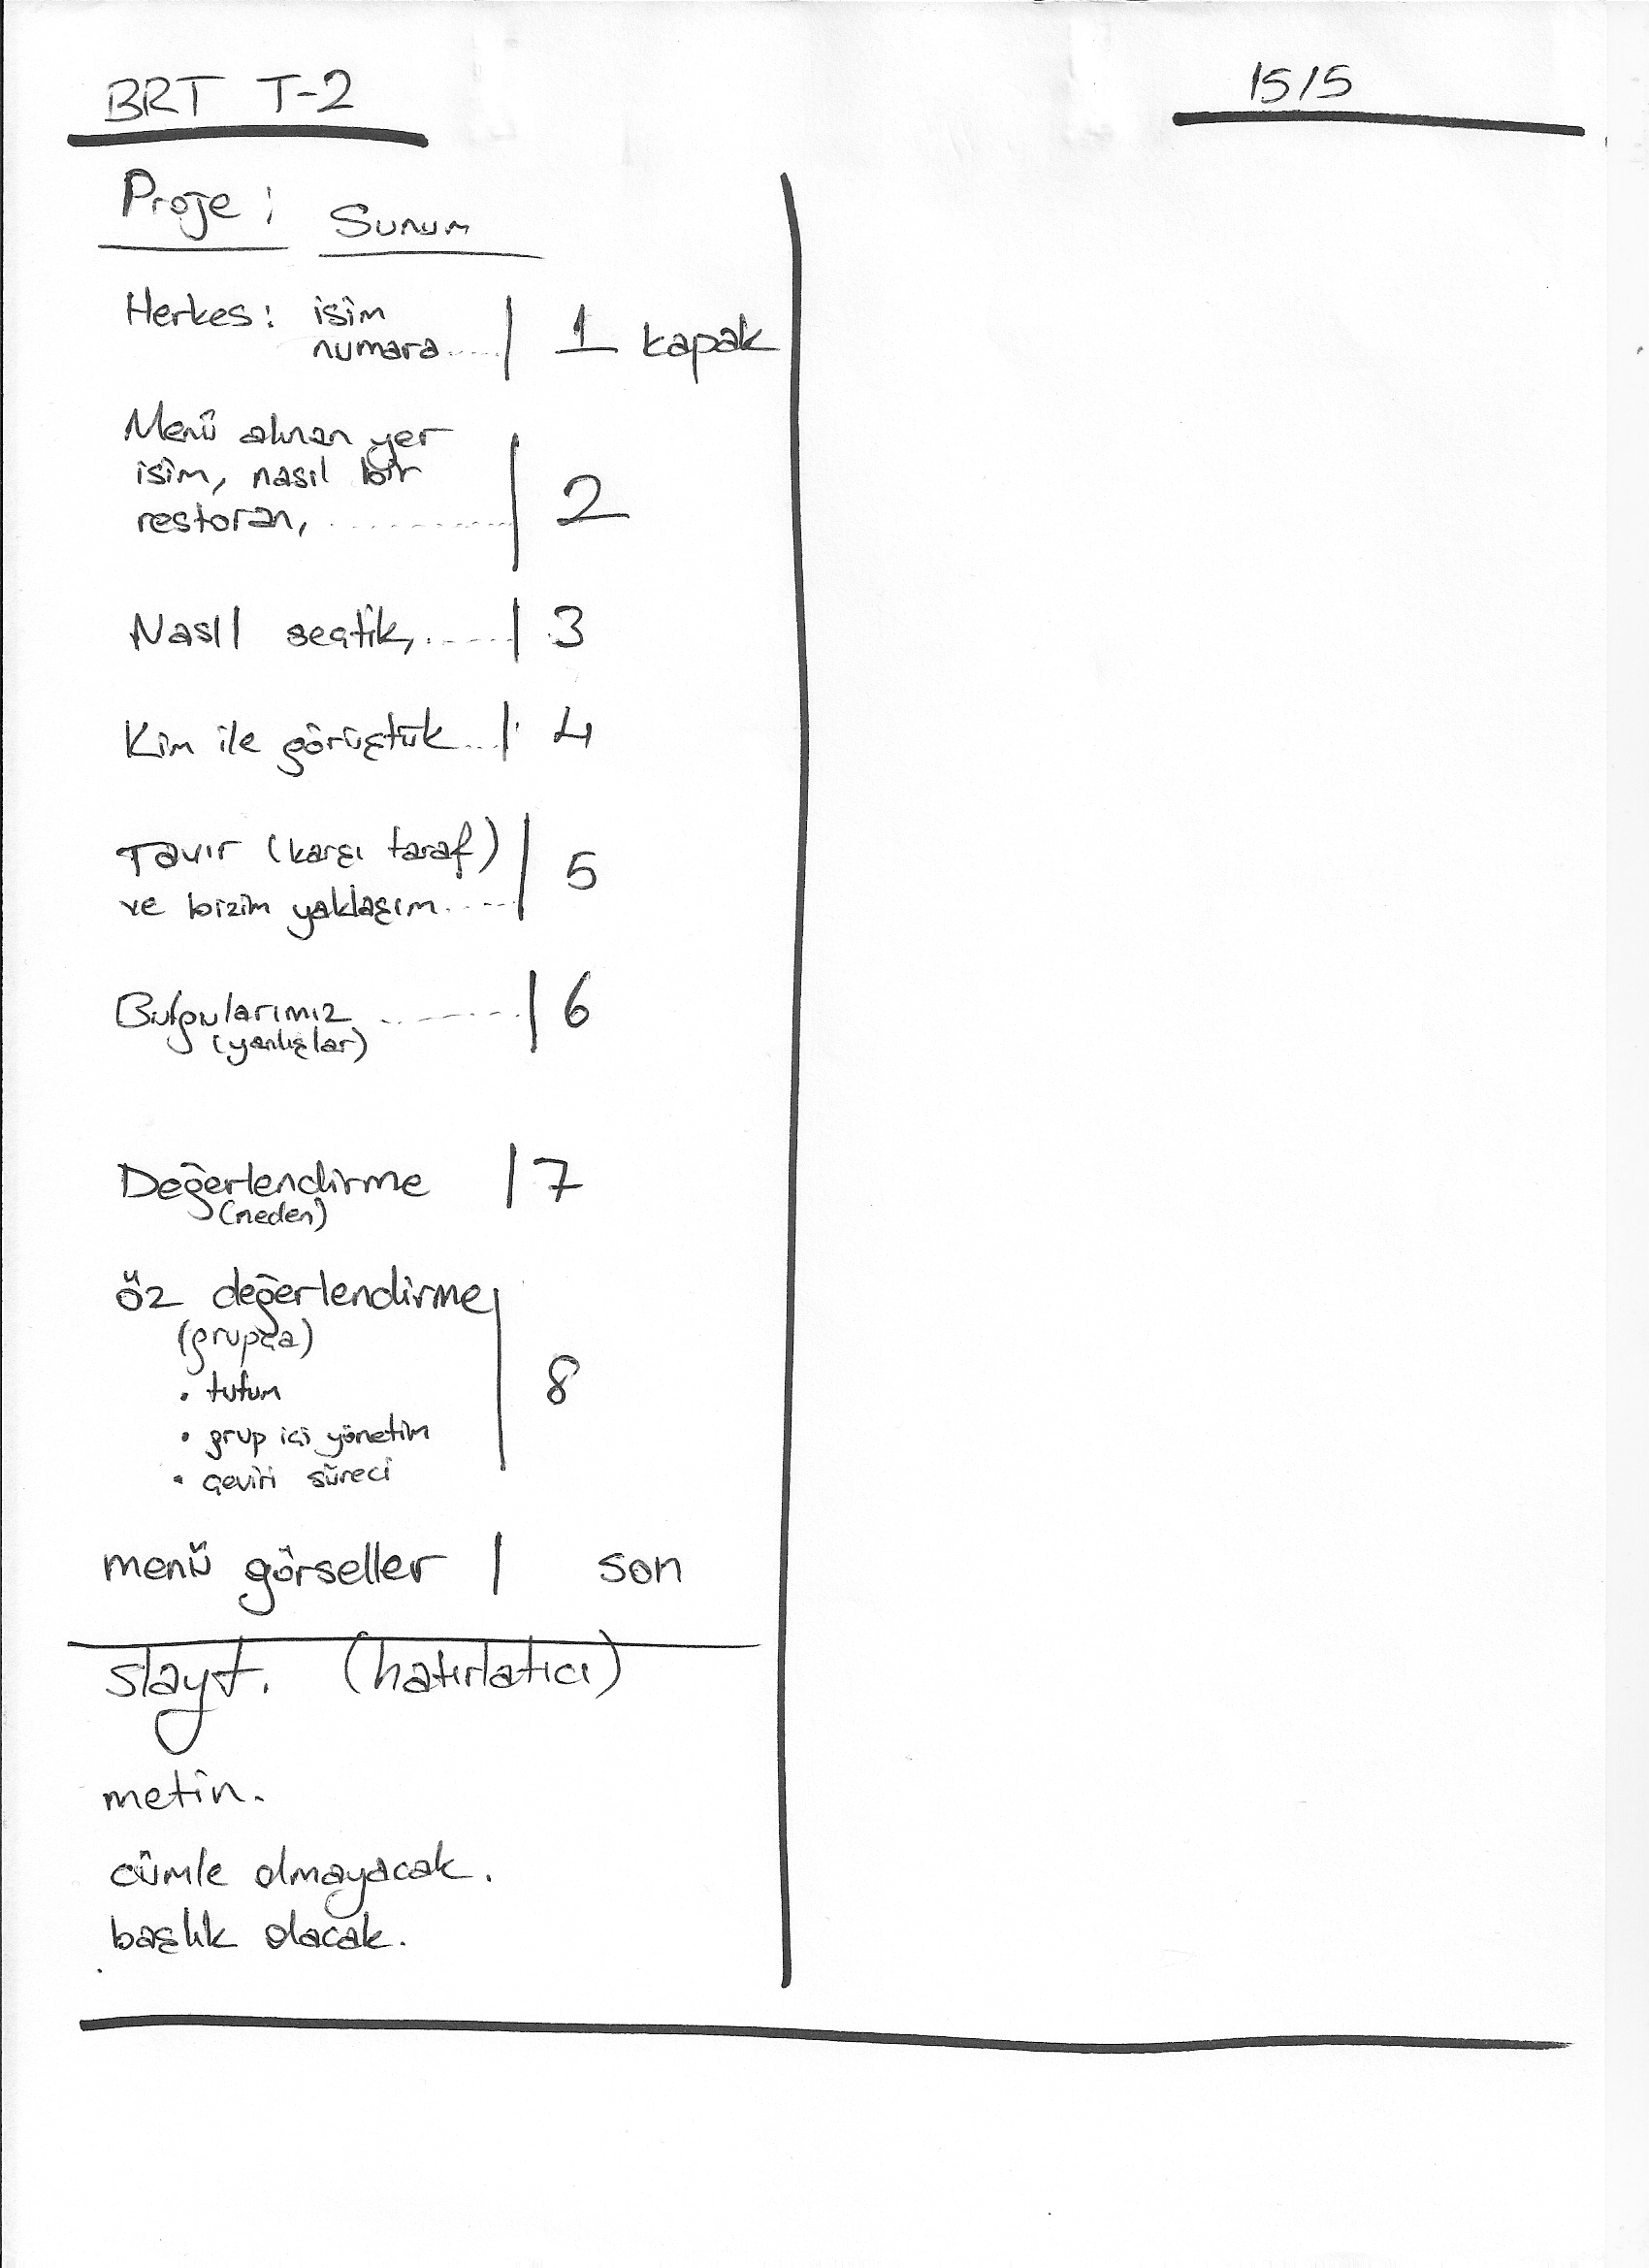 BRT T-2
15/5
Proje : Sunum
Herkes: isim
numara ..... | 1 kapak
Menü alınan yer
isim, nasıl bir
restoran, .......... | 2
Nasıl seçtik, ...... | 3
Kim ile görüştük .... | 4
Tavır (karşı taraf)
ve bizim yaklaşım ..... | 5
Bulgularımız ........ | 6
(yanlışlar)
Değerlendirme | 7
(neden)
öz değerlendirme
(grupça)
• tutum | 8
• grup içi yönetim
• çeviri süreci
menü görseller | son
slayt. (hatırlatıcı)
metin.
cümle olmayacak.
başlık olacak.